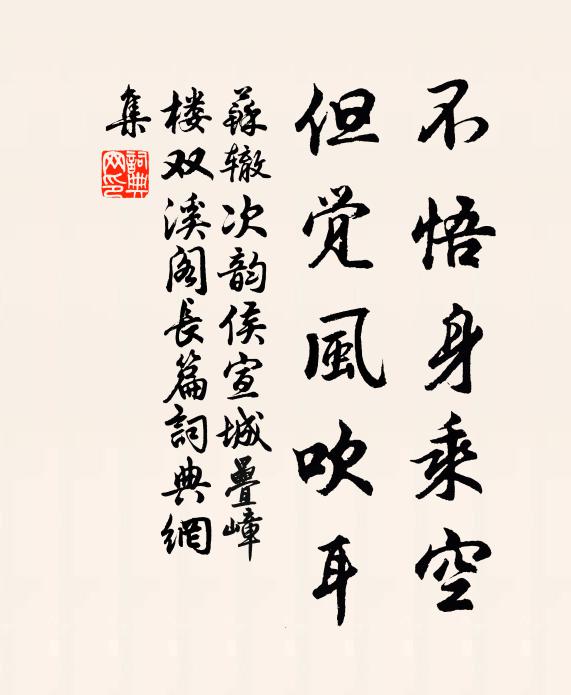 不悟身乘空
但觉風吹耳
蘇辙次韵侯宣城疊嶂
楼双溪阁長篇詞典網
集
詞典
网印